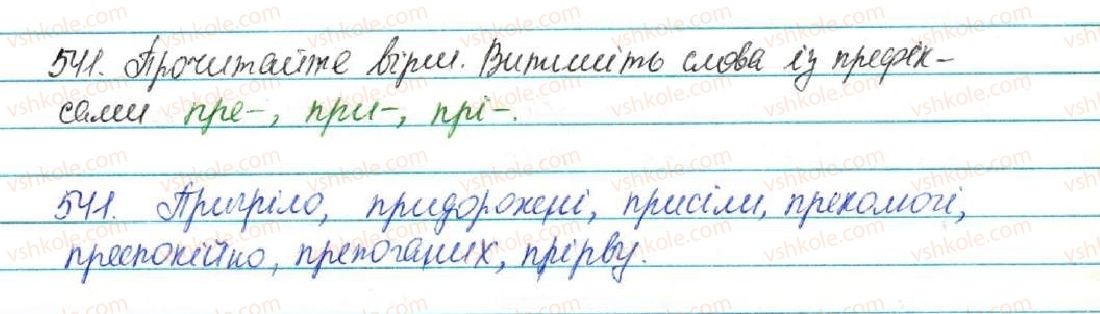 541. Прочитайте вірш. Випишіть слова із префік-
сами пре-, при-, прі-.
541. Пригріло, придорожені, присіли, прехоможі,
преспокійно, препоганих, прірву.